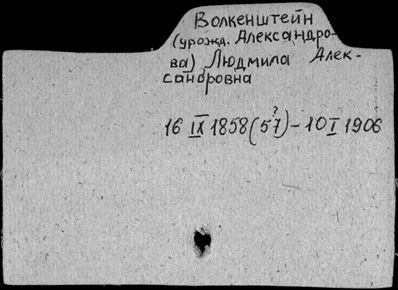 Волкенштейн
(урожд. Александро-
ва) Людмила Алек-
сандровна
16 IX 1858(57?)-10 I 1906